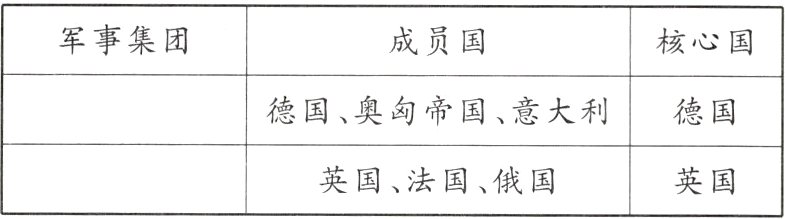 军事集团 成员国 核心国
德国、奥匈帝国、意大利 德国
英国、法国、俄国 英国